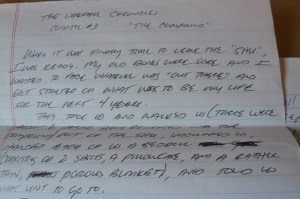 THE INTERNAL CHRONICLES
COUNT #3 "THE COMPOUND"
WHEN IT WAS FINALLY TIME TO LEAVE THE "SHU",
I WAS READY. MY OLD BONES WERE SORE AND I
WANTED TO FACE WHATEVER WAS "OUT THERE" AND
GET STARTED ON WHAT WAS TO BE MY LIFE
FOR THE NEXT 4 YEARS.
THEY TOOK ID AND WALKED US (THERE WERE
HANDED EACH OF US A BEDROLL
OF 2 SHEETS, A PILLOWCASE, AND A RATHER
THIN, POROUS BLANKET), AND TOLD US
UNIT TO GO TO.